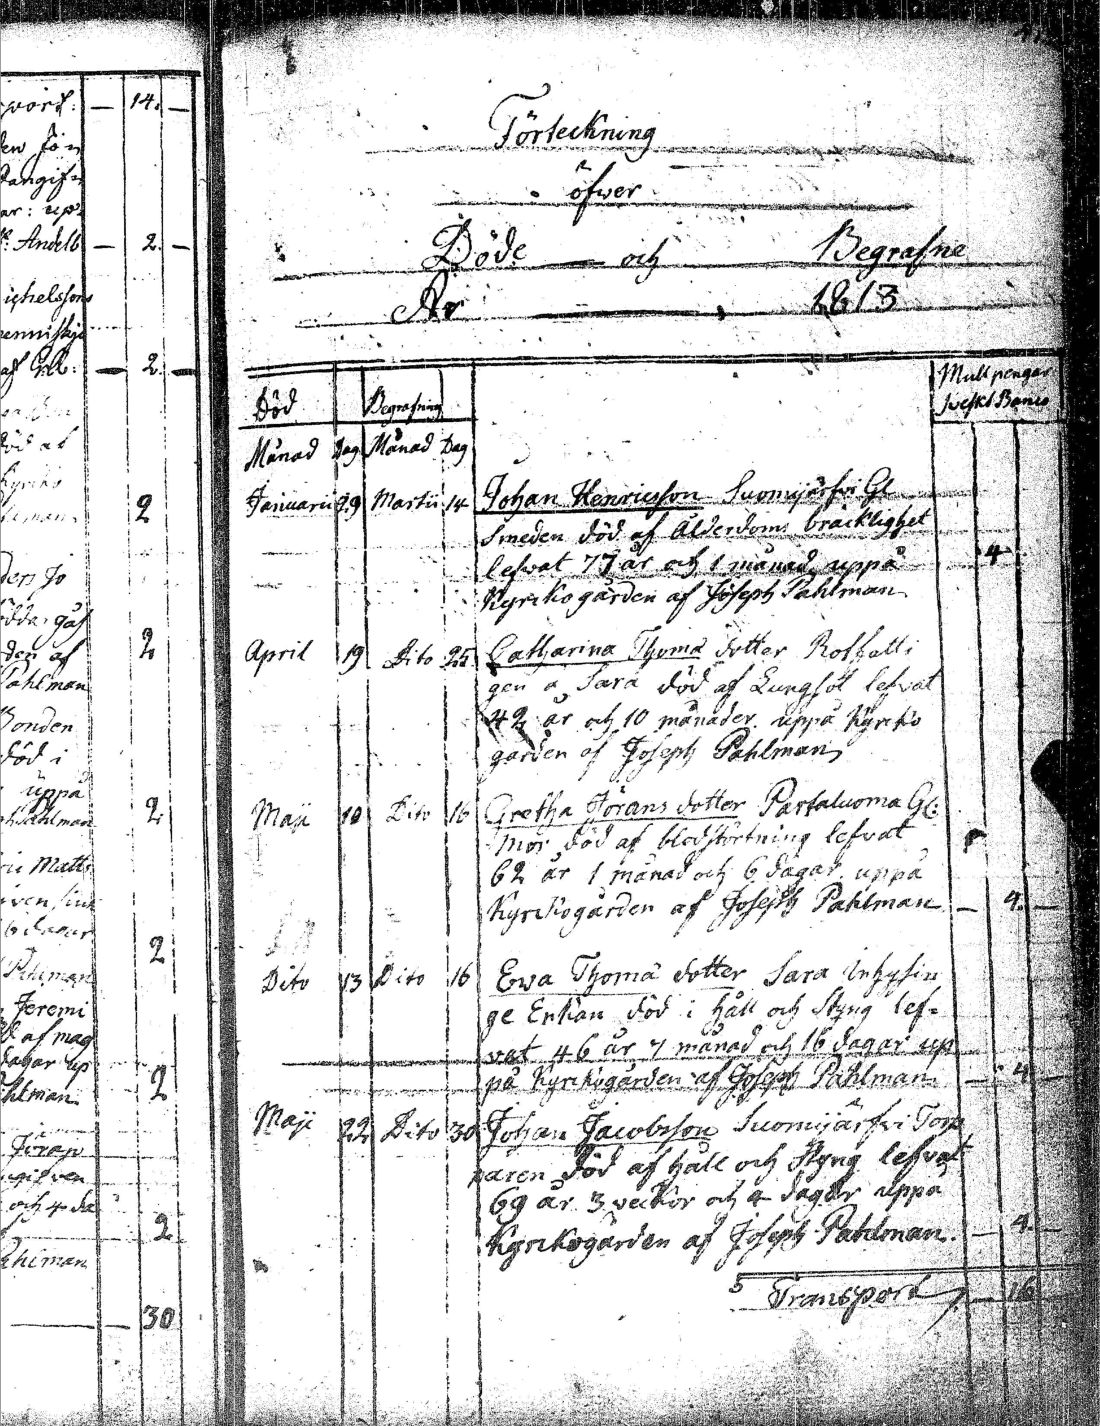 word: — 14. —
den Jo
Pangifn
ar: up
Andelb — 2. —
ichelssons
enniskji
af — 2. —
död af
Kyrko
2
den Jo
2
den af
Pahlman
Bonden
död i
uppå
Pahlman 2
Matts
6 dagar
2
Pahlman
Jeremi
d af mag
dagar up
hlman 2
Jöran
ugifven
och 4 da
2
Pahlman
30
Förteckning
öfwer
Döde och Begrafne
År 1813
Död Begrafning Mullpengar
Månad Dag Månad Dag
Januarii 29 Martii 14 Johan Henricsson Suomijärfvi Gl
Smeden död af Ålderdoms bräcklighet
lefvat 77 år och 1 månad uppå 4
Kyrkogården af Joseph Pahlman
April 19 Dito 25 Catharina Thoma dotter
gen a Sara död af Lungsöt lefvat
42 år och 10 månader uppå Kyrko
gården af Joseph Pahlman
Maji 10 Dito 16 Gretha Jörans dotter Partaluoma Gl:
mor död af blodstörtning lefvat
62 år 1 månad och 6 dagar uppå
Kyrkogården af Joseph Pahlman — 4. —
Dito 13 Dito 16 Ewa Thoma dotter Sara Inhysin
ge Enkan död i håll och Styng lef-
vat 46 år 7 månad och 16 dagar up
på Kyrkogården af Joseph Pahlman — 4 —
Maji 22 Dito 30 Johan Jacobsson Suomijärfvi Torp
paren död af håll och Styng lefvat
69 år 3 veckor och 4 dagar uppå
Kyrkogården af Joseph Pahlman. — 4. —
5 Transport — 16